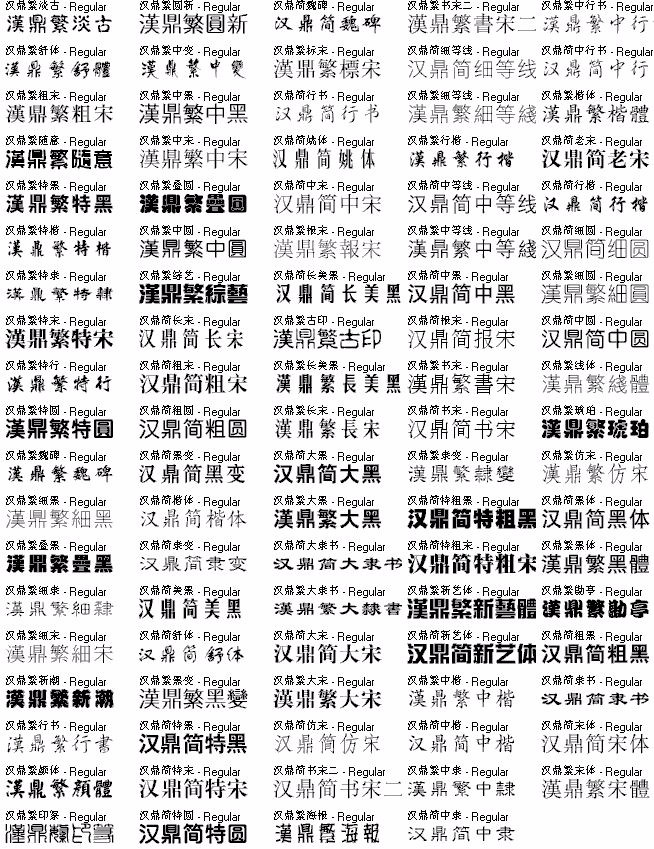 汉鼎繁淡古 - Regular 汉鼎繁圆新 - Regular 汉鼎简魏碑 - Regular 汉鼎繁书宋二 - Regular 汉鼎繁中行书 - Regular
漢鼎繁淡古 漢鼎繁圓新 汉鼎简魏碑 漢鼎繁書宋二 漢鼎繁中行
汉鼎繁舒体 - Regular 汉鼎繁中变 - Regular 汉鼎繁标宋 - Regular 汉鼎简细等线 - Regular 汉鼎简中行书 - Regular
漢鼎繁舒體 漢鼎繁中變 漢鼎繁標宋 汉鼎简细等线 汉鼎简中行
汉鼎繁粗宋 - Regular 汉鼎繁中黑 - Regular 汉鼎简行书 - Regular 汉鼎繁细等线 - Regular 汉鼎繁楷体 - Regular
漢鼎繁粗宋 漢鼎繁中黑 汉鼎简行书 漢鼎繁細等綫 漢鼎繁楷體
汉鼎繁随意 - Regular 汉鼎繁中宋 - Regular 汉鼎简姚体 - Regular 汉鼎繁行楷 - Regular 汉鼎简老宋 - Regular
漢鼎繁隨意 漢鼎繁中宋 汉鼎简姚体 漢鼎繁行楷 汉鼎简老宋
汉鼎繁特黑 - Regular 汉鼎繁叠圆 - Regular 汉鼎简中宋 - Regular 汉鼎简中等线 - Regular 汉鼎简行楷 - Regular
漢鼎繁特黑 漢鼎繁疊圓 汉鼎简中宋 汉鼎简中等线 汉鼎简行楷
汉鼎繁特楷 - Regular 汉鼎繁中圆 - Regular 汉鼎繁报宋 - Regular 汉鼎繁中等线 - Regular 汉鼎简细圆 - Regular
漢鼎繁特楷 漢鼎繁中圓 漢鼎繁報宋 漢鼎繁中等綫 汉鼎简细圆
汉鼎繁特隶 - Regular 汉鼎繁综艺 - Regular 汉鼎简长美黑 - Regular 汉鼎简中黑 - Regular 汉鼎繁细圆 - Regular
漢鼎繁特隸 漢鼎繁綜藝 汉鼎简长美黑 汉鼎简中黑 漢鼎繁細圓
汉鼎繁特宋 - Regular 汉鼎简长宋 - Regular 汉鼎繁古印 - Regular 汉鼎简报宋 - Regular 汉鼎简中圆 - Regular
漢鼎繁特宋 汉鼎简长宋 漢鼎繁古印 汉鼎简报宋 汉鼎简中圆
汉鼎繁特行 - Regular 汉鼎简粗宋 - Regular 汉鼎繁长美黑 - Regular 汉鼎繁书宋 - Regular 汉鼎繁线体 - Regular
漢鼎繁特行 汉鼎简粗宋 漢鼎繁長美黑 漢鼎繁書宋 漢鼎繁綫體
汉鼎繁特圆 - Regular 汉鼎简粗圆 - Regular 汉鼎繁长宋 - Regular 汉鼎简书宋 - Regular 汉鼎繁琥珀 - Regular
漢鼎繁特圓 汉鼎简粗圆 漢鼎繁長宋 汉鼎简书宋 漢鼎繁琥珀
汉鼎繁魏碑 - Regular 汉鼎简黑变 - Regular 汉鼎简大黑 - Regular 汉鼎繁隶变 - Regular 汉鼎繁仿宋 - Regular
漢鼎繁魏碑 汉鼎简黑变 汉鼎简大黑 漢鼎繁隸變 漢鼎繁仿宋
汉鼎繁细黑 - Regular 汉鼎简楷体 - Regular 汉鼎繁大黑 - Regular 汉鼎简特粗黑 - Regular 汉鼎简黑体 - Regular
漢鼎繁細黑 汉鼎简楷体 漢鼎繁大黑 汉鼎简特粗黑 汉鼎简黑体
汉鼎繁叠黑 - Regular 汉鼎简隶变 - Regular 汉鼎简大隶书 - Regular 汉鼎简特粗宋 - Regular 汉鼎繁黑体 - Regular
漢鼎繁疊黑 汉鼎简隶变 汉鼎简大隶书 汉鼎简特粗宋 漢鼎繁黑體
汉鼎繁细隶 - Regular 汉鼎简美黑 - Regular 汉鼎繁大隶书 - Regular 汉鼎繁新艺体 - Regular 汉鼎繁勘亭 - Regular
漢鼎繁細隸 汉鼎简美黑 漢鼎繁大隸書 漢鼎繁新藝體 漢鼎繁勘亭
汉鼎繁细宋 - Regular 汉鼎简舒体 - Regular 汉鼎简大宋 - Regular 汉鼎简新艺体 - Regular 汉鼎简粗黑 - Regular
漢鼎繁細宋 汉鼎简舒体 汉鼎简大宋 汉鼎简新艺体 汉鼎简粗黑
汉鼎繁新潮 - Regular 汉鼎繁黑变 - Regular 汉鼎繁大宋 - Regular 汉鼎繁中楷 - Regular 汉鼎简隶书 - Regular
漢鼎繁新潮 漢鼎繁黑變 漢鼎繁大宋 漢鼎繁中楷 汉鼎简隶书
汉鼎繁行书 - Regular 汉鼎简特黑 - Regular 汉鼎简仿宋 - Regular 汉鼎简中楷 - Regular 汉鼎简宋体 - Regular
漢鼎繁行書 汉鼎简特黑 汉鼎简仿宋 汉鼎简中楷 汉鼎简宋体
汉鼎繁颜体 - Regular 汉鼎简特宋 - Regular 汉鼎简书宋二 - Regular 汉鼎繁中隶 - Regular 汉鼎繁宋体 - Regular
漢鼎繁顏體 汉鼎简特宋 汉鼎简书宋二 漢鼎繁中隸 漢鼎繁宋體
汉鼎繁印篆 - Regular 汉鼎简特圆 - Regular 汉鼎繁海报 - Regular 汉鼎简中隶 - Regular
漢鼎繁印篆 汉鼎简特圆 漢鼎繁海報 汉鼎简中隶